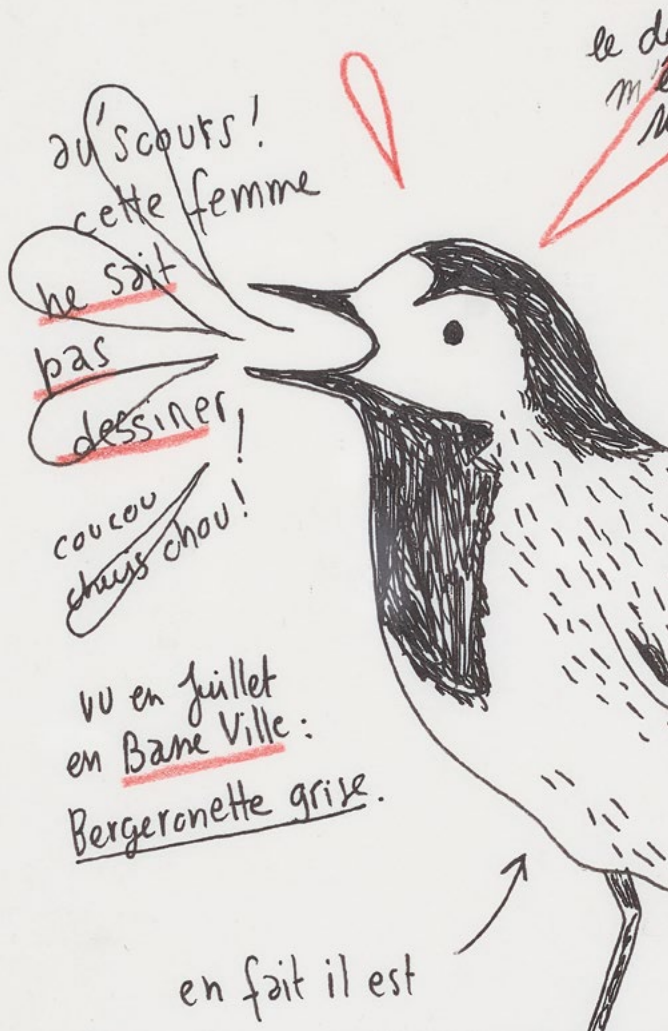 au'scours!
cette femme
ne sait
pas
dessiner!
coucou
chuis chou!
vu en Juillet
en Basse Ville:
Bergeronette grise.
en fait il est
le